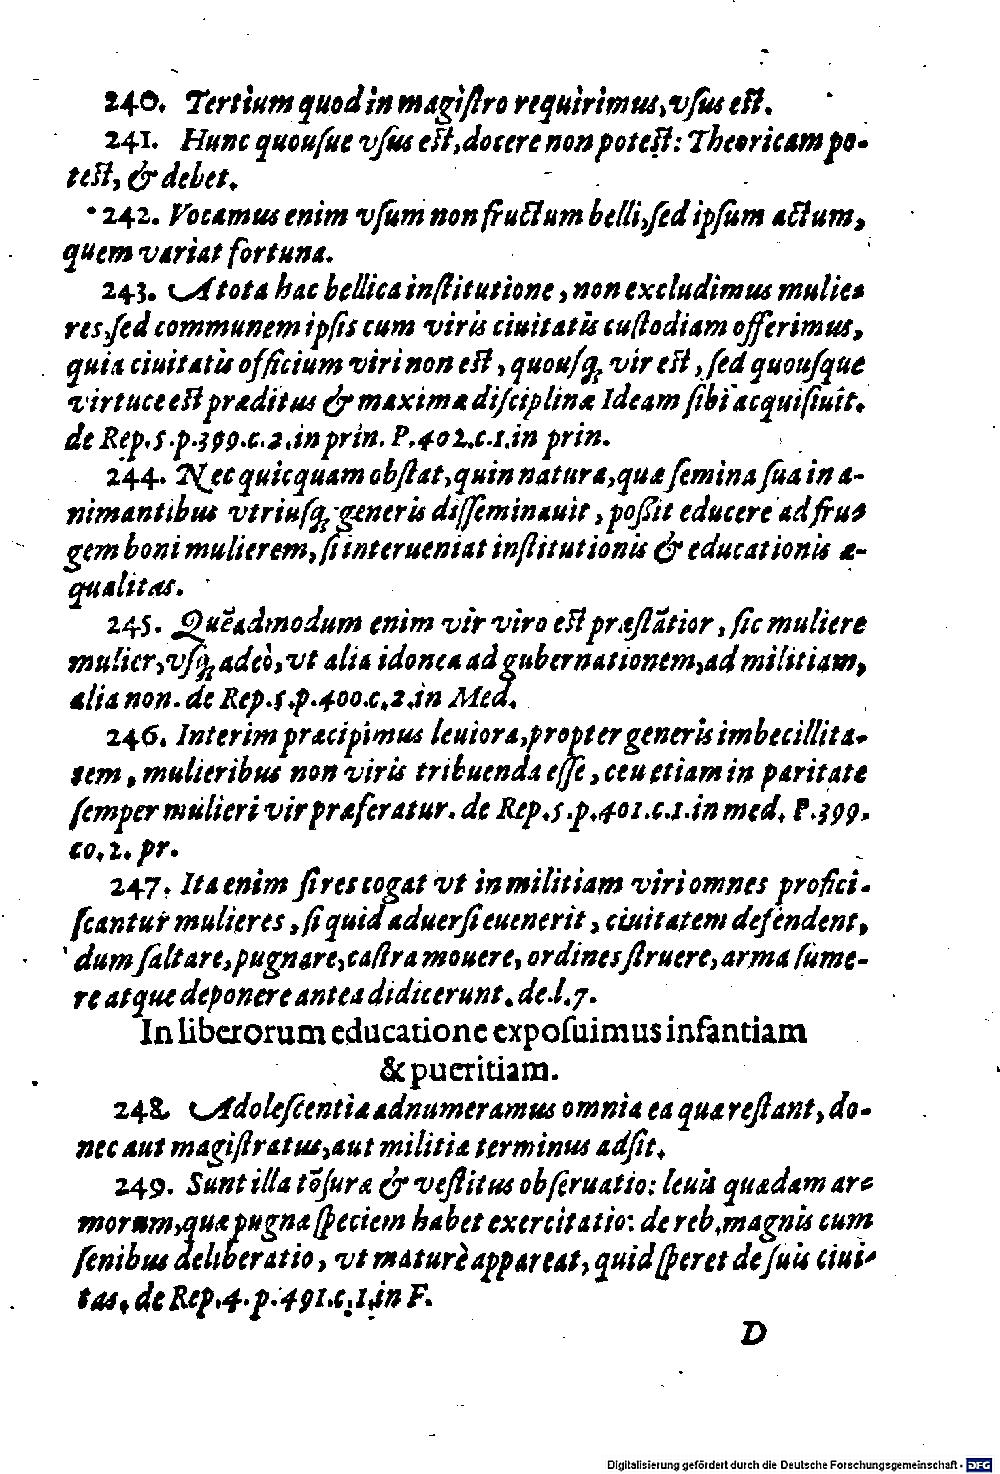 240. Tertium quod in magiſtro requirimus, vſus eſt.
241. Hunc quouſue vſus eſt, docere non poteſt: Theoricam po-
teſt, & debet.
242. Vocamus enim vſum non fructum belli, ſed ipſum actum,
quem variat fortuna.
243. A tota hac bellica inſtitutione, non excludimus mulie-
res, ſed communem ipſis cum viris ciuitatis cuſtodiam offerimus,
quia ciuitatis officium viri non eſt, quouſq; vir eſt, ſed quouſque
virtuce eſt præditus & maximæ diſciplinæ Ideam ſibi acquiſiuit.
de Rep. 5. p. 399. c. 2. in prin. P. 402. c. 1. in prin.
244. Nec quicquam obſtat, quin natura, quæ ſemina ſua in a-
nimantibus vtriuſq; generis diſſeminauit, poßit educere ad fru-
gem boni mulierem, ſi interueniat inſtitutionis & educationis æ-
qualitas.
245. Quẽadmodum enim vir viro eſt præſtãtior, ſic muliere
mulier, vſq; adeò, vt alia idonea ad gubernationem, ad militiam,
alia non. de Rep. 5. p. 400. c. 2. in Med.
246. Interim præcipimus leuiora, propter generis imbecillita-
tem, mulieribus non viris tribuenda eſſe, ceu etiam in paritate
ſemper mulieri vir præferatur. de Rep. 5. p. 401. c. 1. in med. P. 399.
co. 2. pr.
247. Ita enim ſi res cogat vt in militiam viri omnes profici-
ſcantur mulieres, ſi quid aduerſi euenerit, ciuitatem defendent,
dum ſaltare, pugnare, caſtra mouere, ordines ſtruere, arma ſume-
re atque deponere antea didicerunt. de. l. 7.
In liberorum educatione expoſuimus infantiam
& pueritiam.
248. Adoleſcentia adnumeramus omnia ea quæ reſtant, do-
nec aut magiſtratus, aut militiæ terminus adſit.
249. Sunt illa tõſuræ & veſtitus obſeruatio: leuis quædam ar-
morum, quæ pugnæ ſpeciem habet exercitatio: de reb. magnis cum
ſenibus deliberatio, vt maturè appareat, quid ſperet de ſuis ciui-
tas. de Rep. 4. p. 491. c. 1. in F.
D
Digitalisierung gefördert durch die Deutsche Forschungsgemeinschaft - DFG